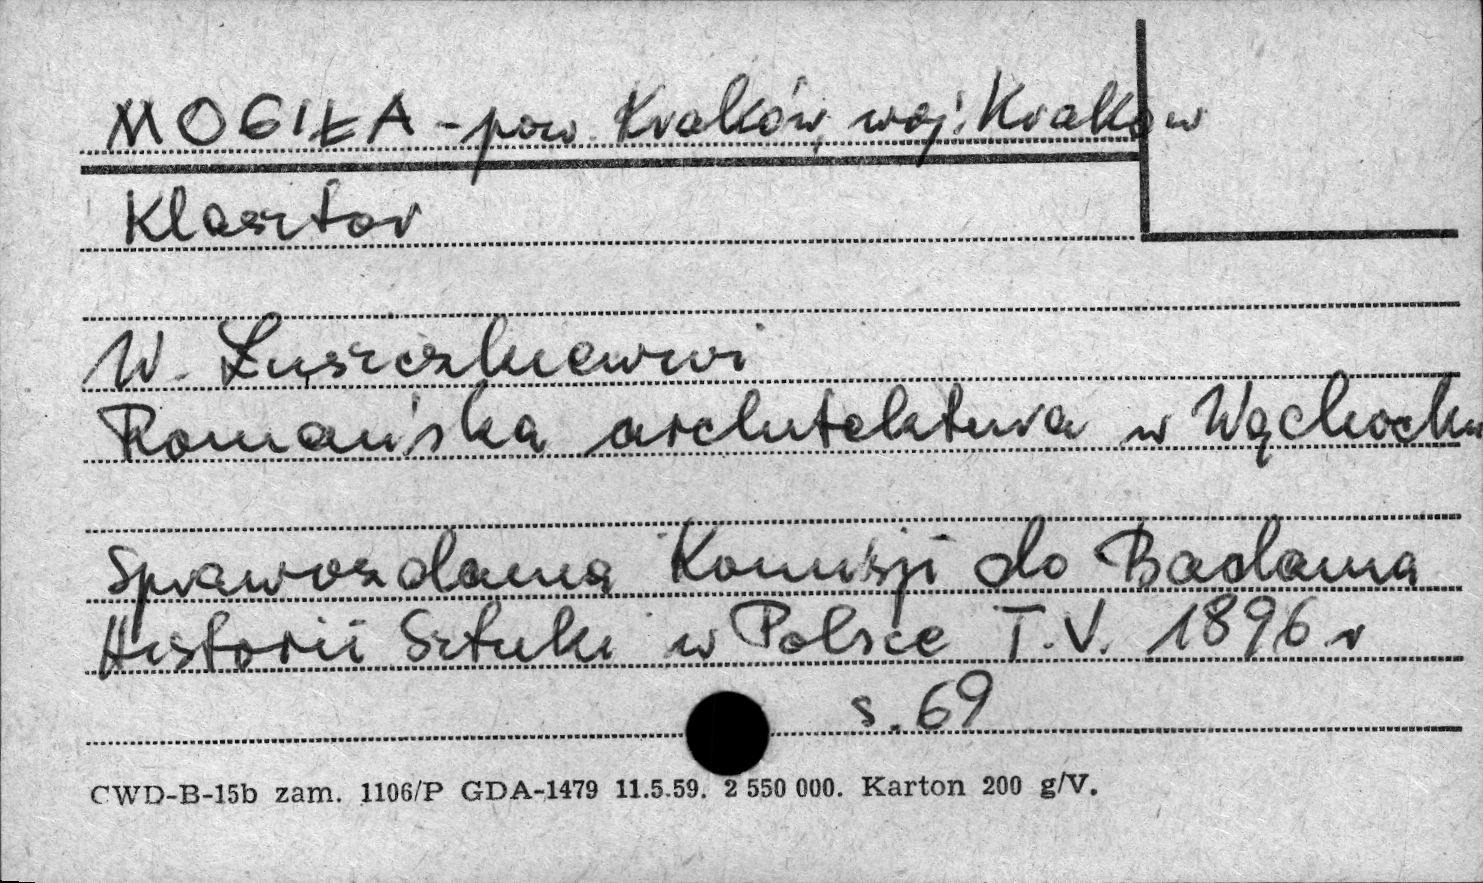 MOGIŁA - pow. Kraków, woj. Kraków
Klasztor
W. Łuszczkiewicz
Romańska architektura w Wąchocku
Sprawozdania Komisji do Badania
Historii Sztuki w Polsce T.V. 1896 r
s. 69
CWD-B-15b zam. 1106/P GDA-1479 11.5.59. 2 550 000. Karton 200 g/V.